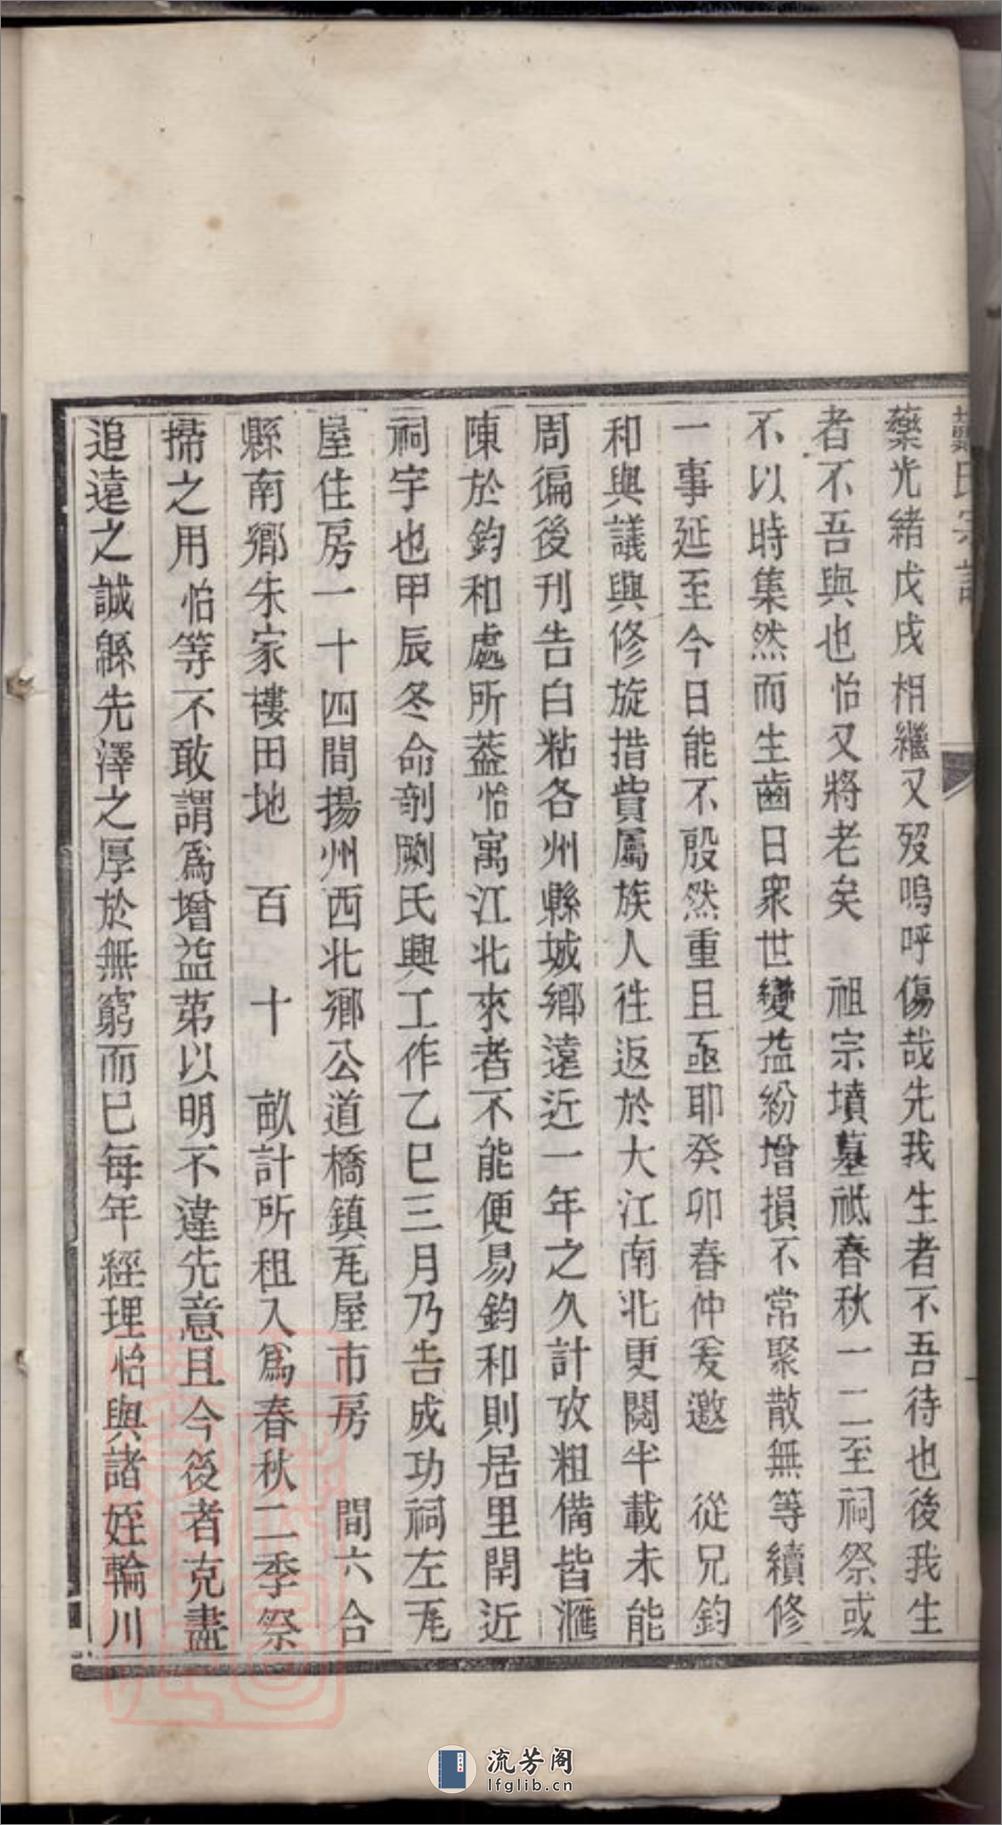 龔氏宗譜
藥光緒戊戌相繼又歿嗚呼傷哉先我生者不吾待也後我生
者不吾與也怡又將老矣　祖宗墳墓祇春秋一二至祠祭或
不以時集然而生齒日眾世變益紛增損不常聚散無等續修
一事延至今日能不殷然重且亟耶癸卯春仲爰邀　從兄鈞
和與議興修旋措貲屬族人徃返於大江南北更閱半載未能
周徧後刊告白粘各州縣城鄉遠近一年之久計攷粗備皆滙
陳於鈞和處所葢怡寓江北來者不能便易鈞和則居里閈近
祠宇也甲辰冬命剞劂氏興工作乙巳三月乃告成功祠左瓦
屋住房一十四間揚州西北鄉公道橋鎮瓦屋市房　間六合
縣南鄉朱家樓田地　百　十　畝計所租入爲春秋二季祭
掃之用怡等不敢謂爲增益苐以明不違先意且今後者克盡
追遠之誠緜先澤之厚於無窮而已每年經理怡與諸姪輪川
流芳阁
lfglib.cn